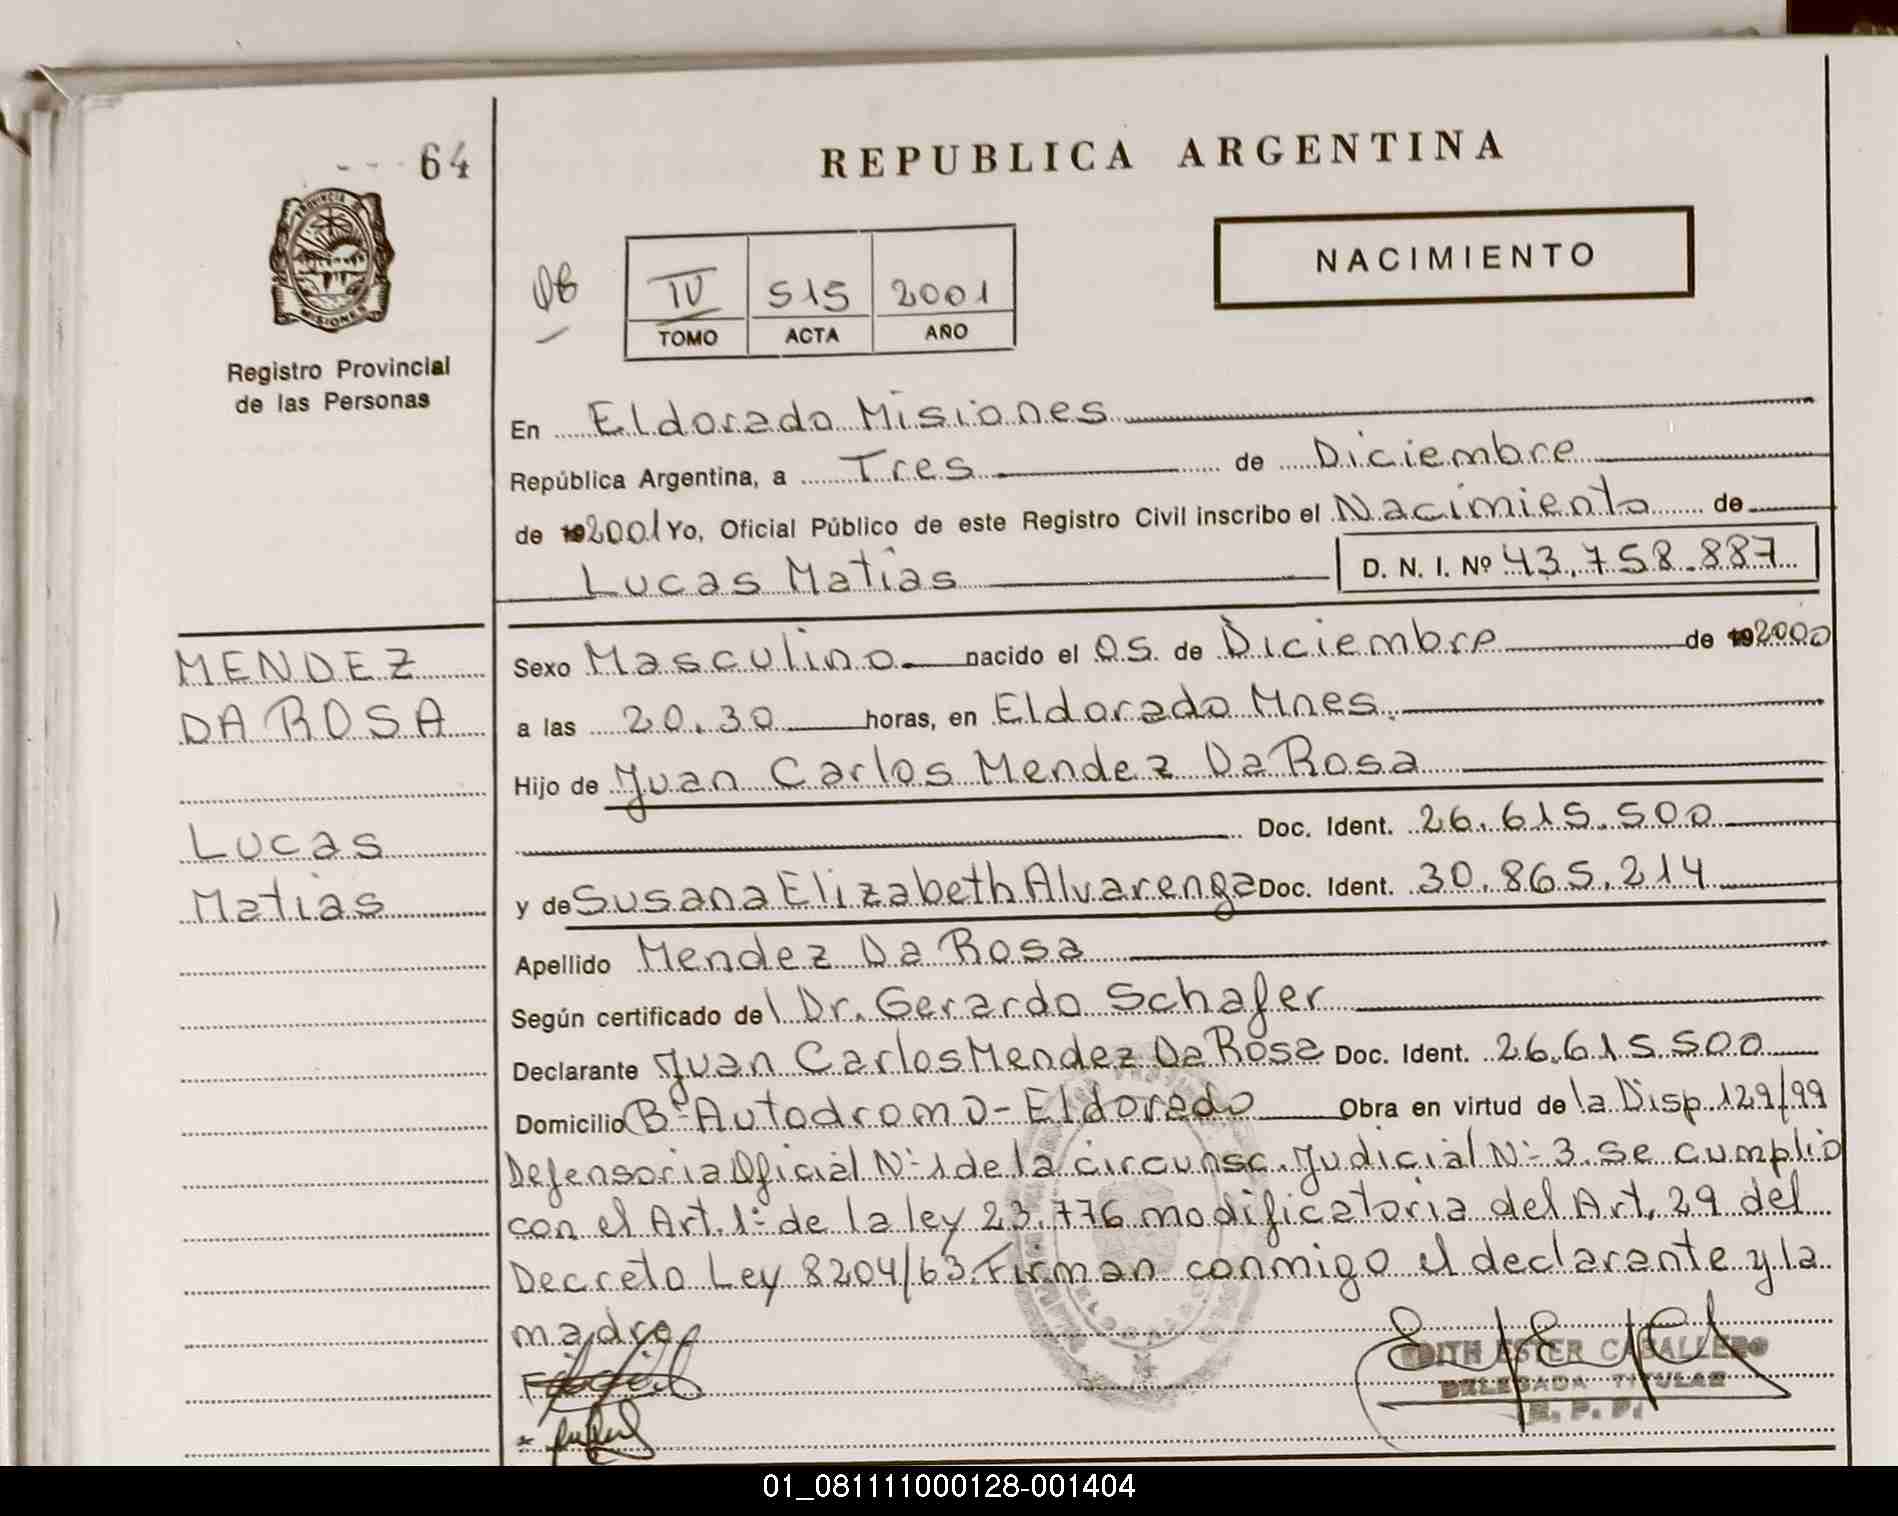 64
REPUBLICA ARGENTINA
PROVINCIA DE
MISIONES
Registro Provincial
de las Personas
NACIMIENTO
IV 515 2001
TOMO ACTA AÑO
En Eldorado Misiones
República Argentina, a Tres de Diciembre
de 192001 Yo, Oficial Público de este Registro Civil inscribo el Nacimiento de
Lucas Matias D. N. I. Nº 43.758.887
MENDEZ
DA ROSA
Lucas
Matias
Sexo Masculino nacido el 05 de Diciembre de 192000
a las 20.30 horas, en Eldorado Mnes.
Hijo de Juan Carlos Mendez Da Rosa
Doc. Ident. 26.615.500
y de Susana Elizabeth Alvarenga Doc. Ident. 30.865.214
Apellido Mendez Da Rosa
Según certificado del Dr. Gerardo Schafer
Declarante Juan Carlos Mendez Da Rosa Doc. Ident. 26.615.500
Domicilio Bº Autodromo - Eldorado Obra en virtud de la Disp 129/99
Defensoria Oficial Nº 1 de la circunsc. Judicial Nº 3. se cumplio
con el Art. 1º de la ley 23.776 modificatoria del Art. 29 del
Decreto Ley 8204/63. Firman conmigo el declarante y la
madre
EDITH ESTER CABALLERO
DELEGADA TITULAR
R. P. P.
01_081111000128-001404